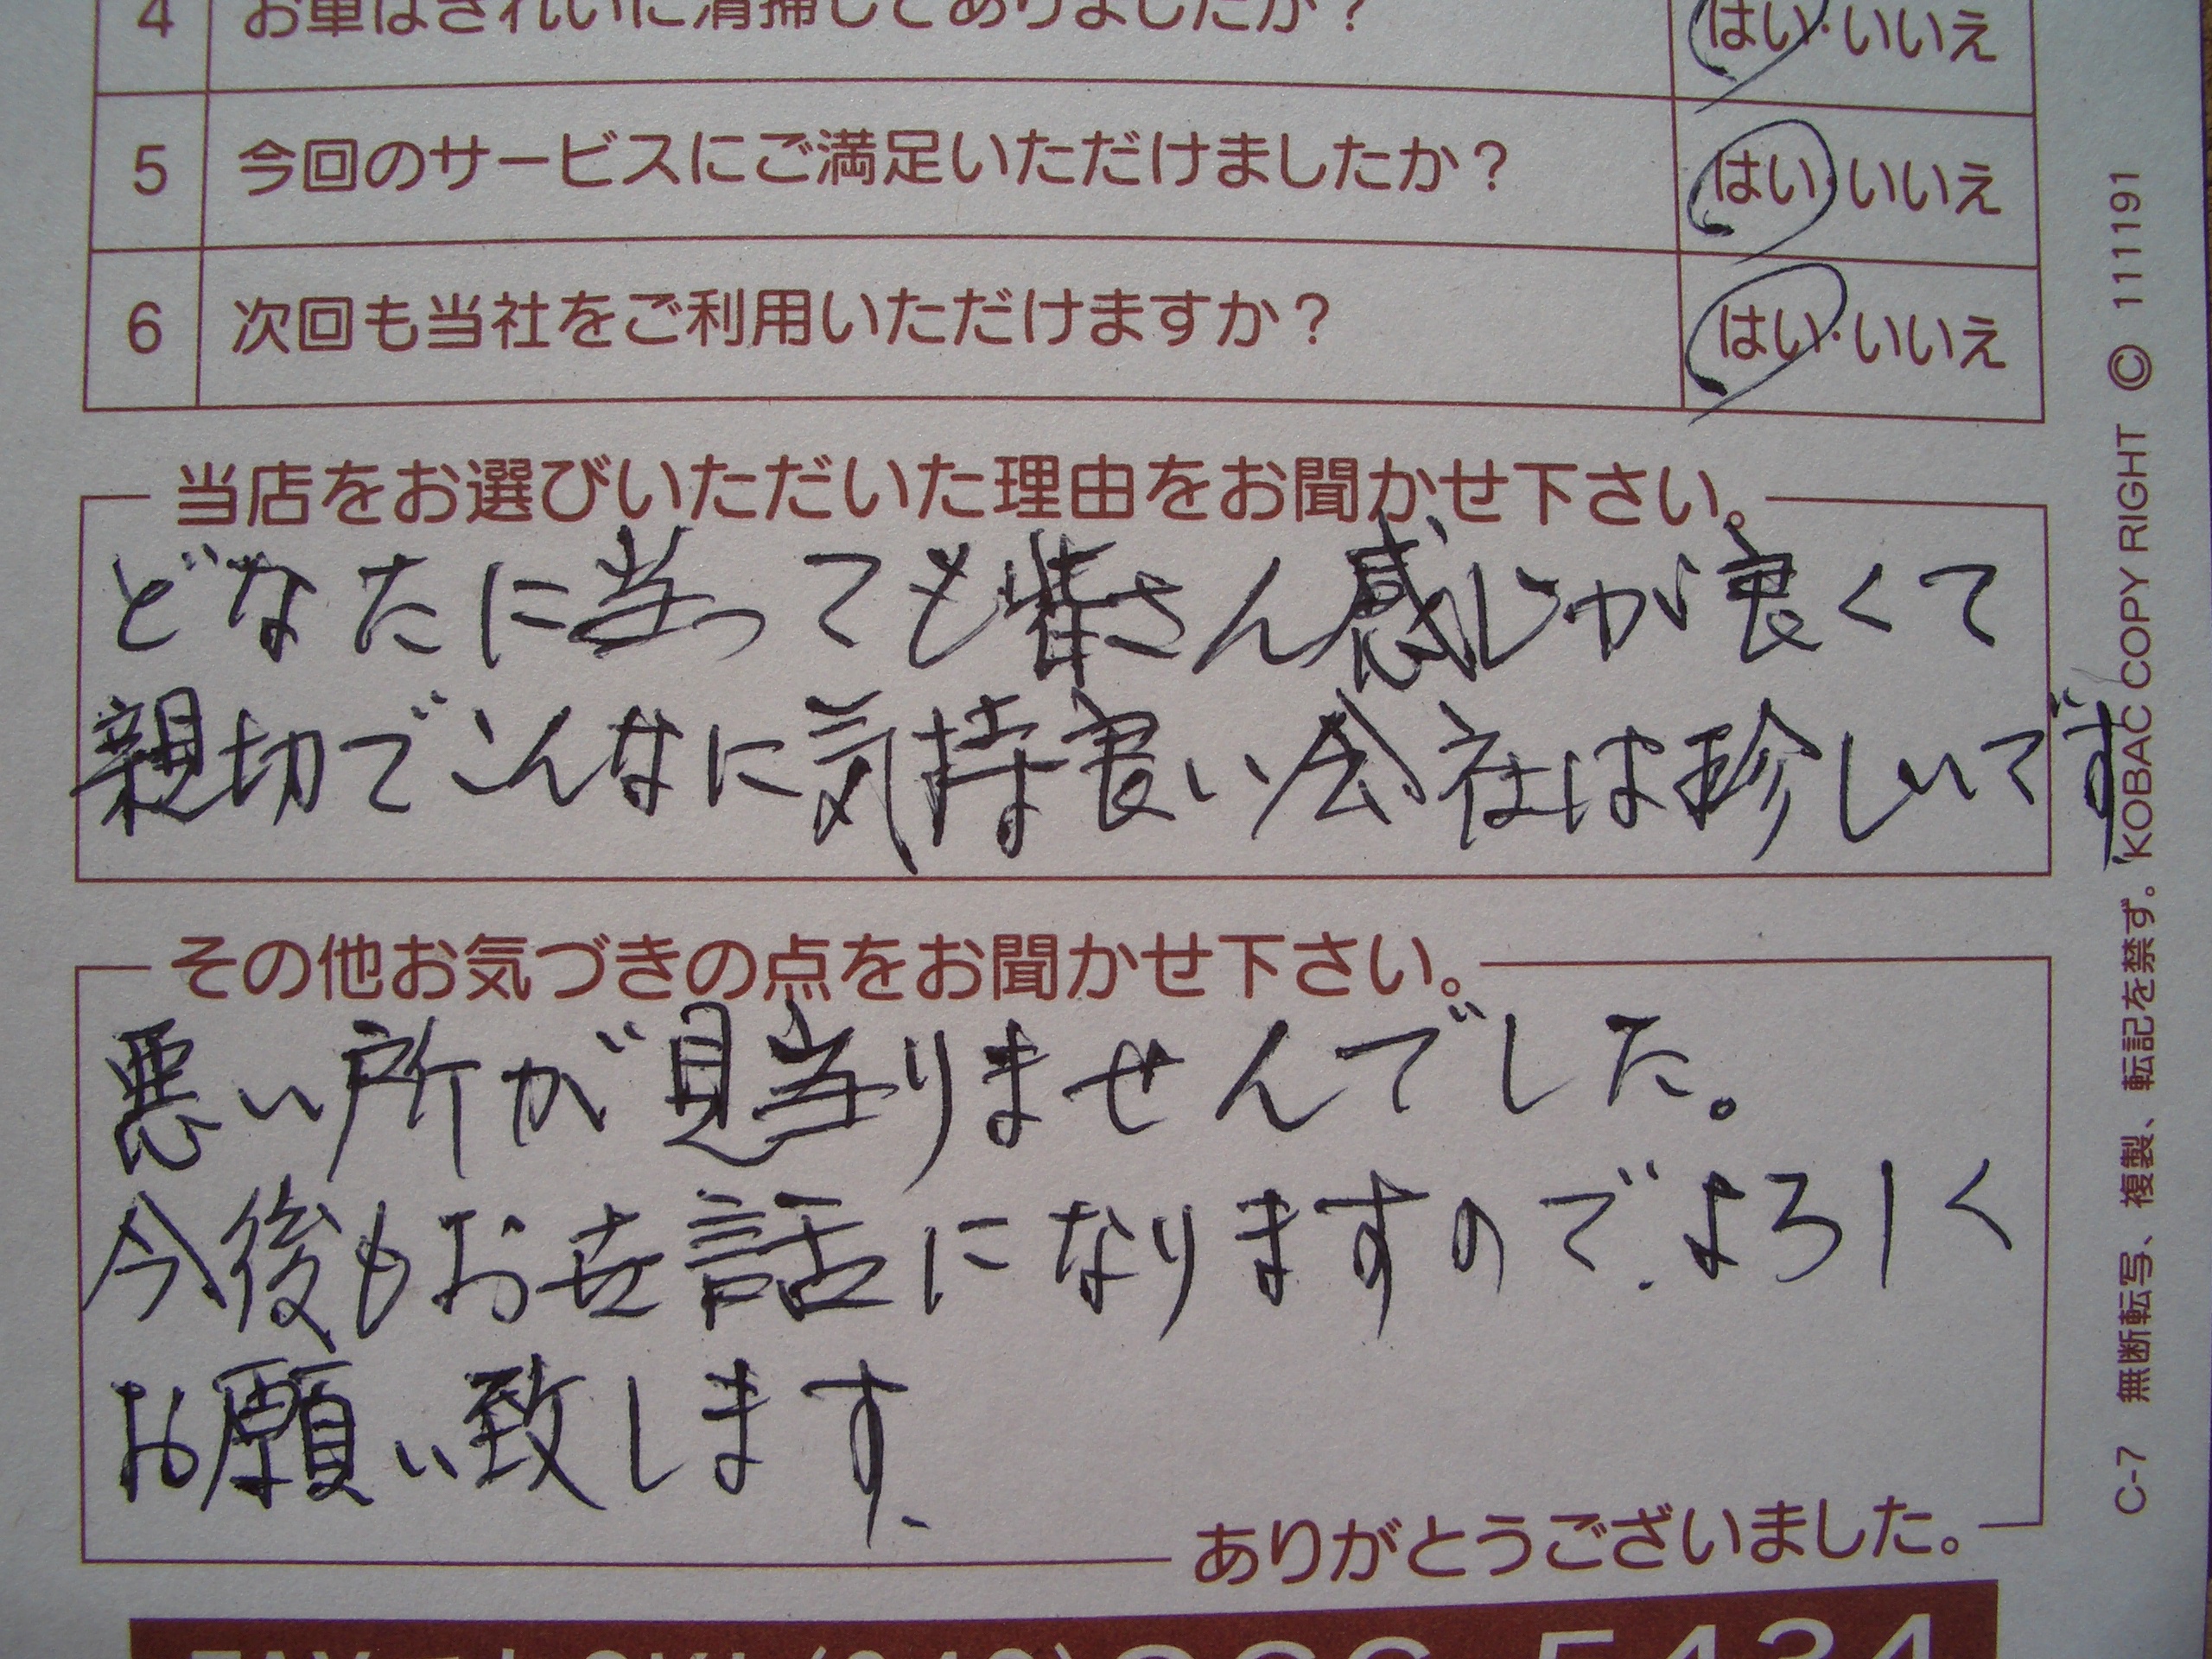 4 お車はきれいに清掃してありましたか？ はい・いいえ
5 今回のサービスにご満足いただけましたか？ はい・いいえ
6 次回も当社をご利用いただけますか？ はい・いいえ
当店をお選びいただいた理由をお聞かせ下さい。
どなたに当っても皆さん感じが良くて
親切でこんなに気持良い会社は珍しいです
その他お気づきの点をお聞かせ下さい。
悪い所が見当りませんでした。
今後もお世話になりますので、よろしく
お願い致します、
ありがとうございました。
C-7 無断転写、複製、転記を禁ず。KOBAC COPY RIGHT © 111191